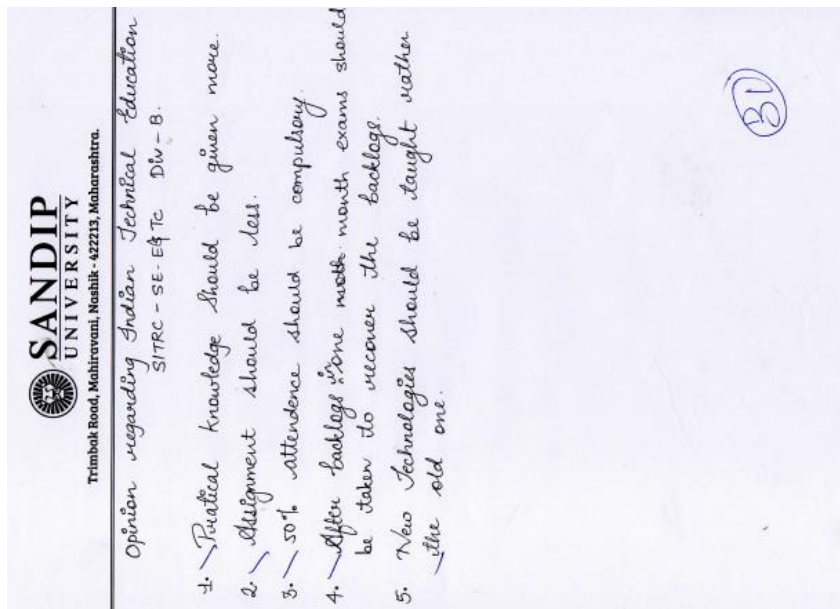 SANDIP
UNIVERSITY
Trimbak Road, Mahiravani, Nashik - 422213, Maharashtra.
Opinion regarding Indian Technical Education
SITRC - SE - E&TC Div - B.
1. Pratical Knowledge Should be given more.
2. Assignment should be less.
3. 50% attendence should be compulsory.
4. After backlogs in one month exams should
be taken to recover the backlogs.
5. New Technologies should be taught rather
the old one.
B1